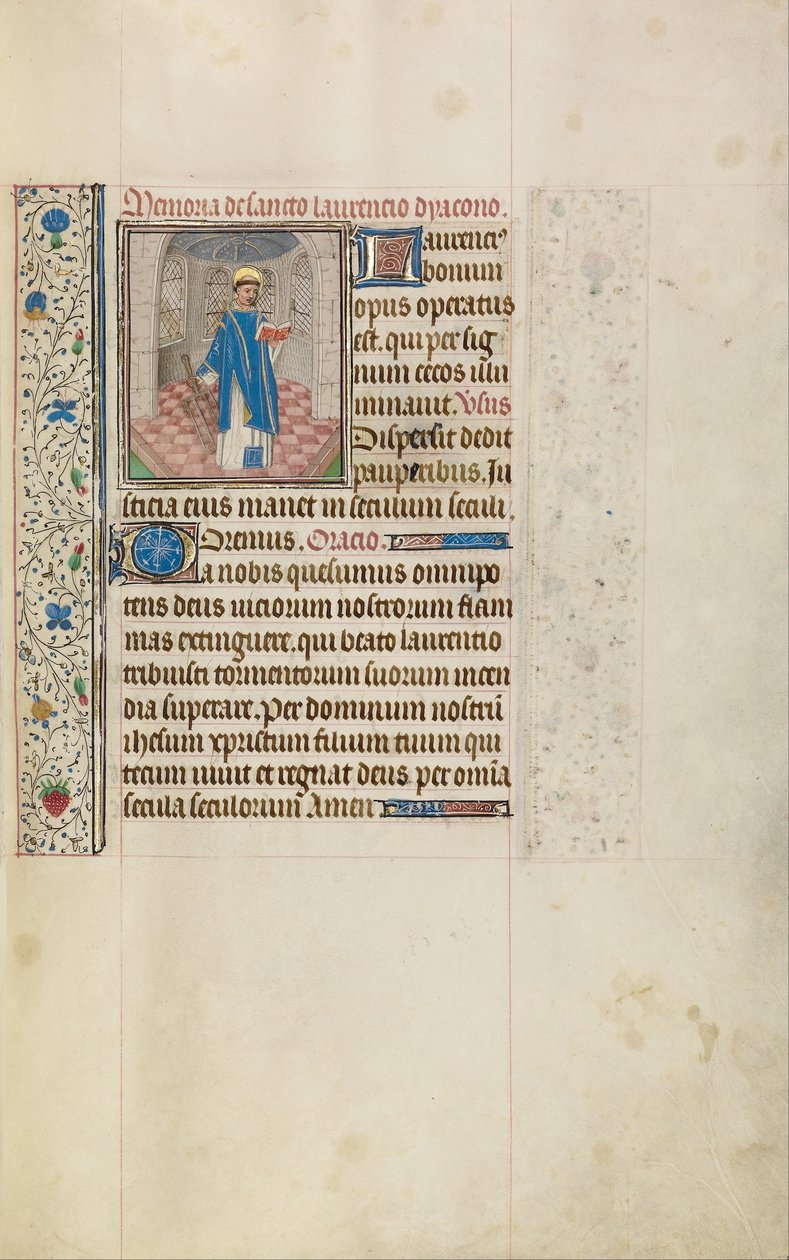 Memoria de sancto laurencio dyacono.
Laurenciꝰ
bonum
opus operatus
est. qui per sig
num cecos illu
minauit. Vsus
Dispersit dedit
pauperibus. Iu
sticia eius manet in seculum seculi.
Oremus. Oracio.
Da nobis quesumus omnipo
tens deus uiciorum nostrorum flam
mas extinguere. qui beato laurentio
tribuisti tormentorum suorum incen
dia superare. Per dominum nostrū
ihesum xpristum filium tuum qui
tecum uiuit et regnat deus per om̄ia
secula seculorum̄ Amen